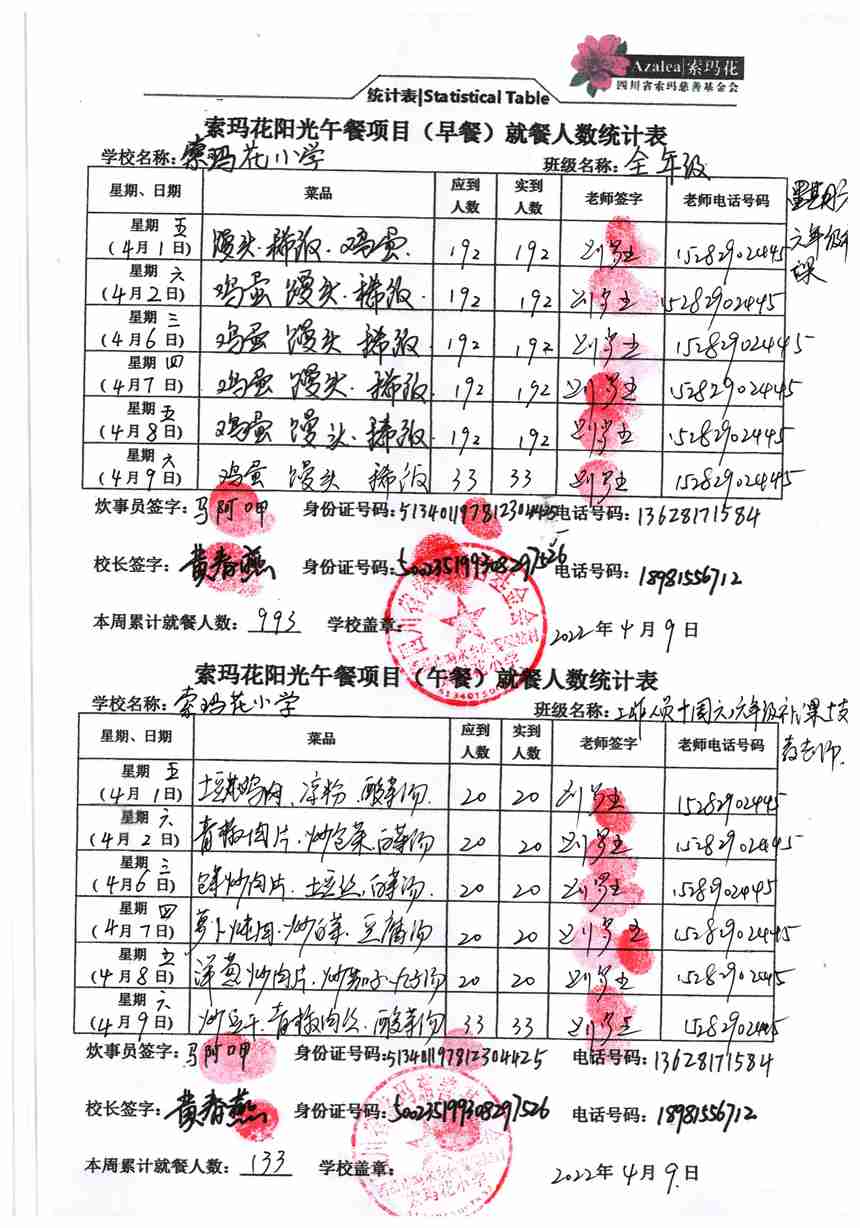 Azalea 索玛花
四川省索玛慈善基金会
统计表|Statistical Table
索玛花阳光午餐项目（早餐）就餐人数统计表
学校名称：索玛花小学 班级名称：全年级
星期、日期 菜品 应到人数 实到人数 老师签字 老师电话号码
星期五（4月1日） 馒头.稀饭.鸡蛋. 192 192 15282902445
星期六（4月2日） 鸡蛋 馒头.稀饭. 192 192 15282902445
星期三（4月6日） 鸡蛋 馒头 稀饭 192 192 15282902445
星期四（4月7日） 鸡蛋 馒头.稀饭. 192 192 15282902445
星期五（4月8日） 鸡蛋 馒头.稀饭 192 192 15282902445
星期六（4月9日） 鸡蛋 馒头 稀饭 33 33 15282902445
炊事员签字：马阿呷 身份证号码：513401197812304425 电话号码：13628171584
校长签字：黄春燕 身份证号码：500235199308297526 电话号码：18981556712
本周累计就餐人数：993 学校盖章： 2022年4月9日
索玛花阳光午餐项目（午餐）就餐人数统计表
学校名称：索玛花小学 班级名称：工作人员+周六六年级补课+支教老师.
星期、日期 菜品 应到人数 实到人数 老师签字 老师电话号码
星期五（4月1日） 土豆炖鸡肉.凉粉.酸菜汤. 20 20 15282902445
星期六（4月2日） 青椒肉片.炒包菜.白菜汤 20 20 15282902445
星期三（4月6日） 炒肉片.土豆丝.白菜汤. 20 20 15282902445
星期四（4月7日） 萝卜炖肉.炒白菜.豆腐汤 20 20 15282902445
星期五（4月8日） 洋葱炒肉片.炒茄子. 20 20 15282902445
星期六（4月9日） 炒豆干.青椒肉丝.酸菜汤 33 33 15282902445
炊事员签字：马阿呷 身份证号码：513401197812304425 电话号码：13628171584
校长签字：黄春燕 身份证号码：500235199308297526 电话号码：18981556712
本周累计就餐人数：133 学校盖章： 2022年4月9日